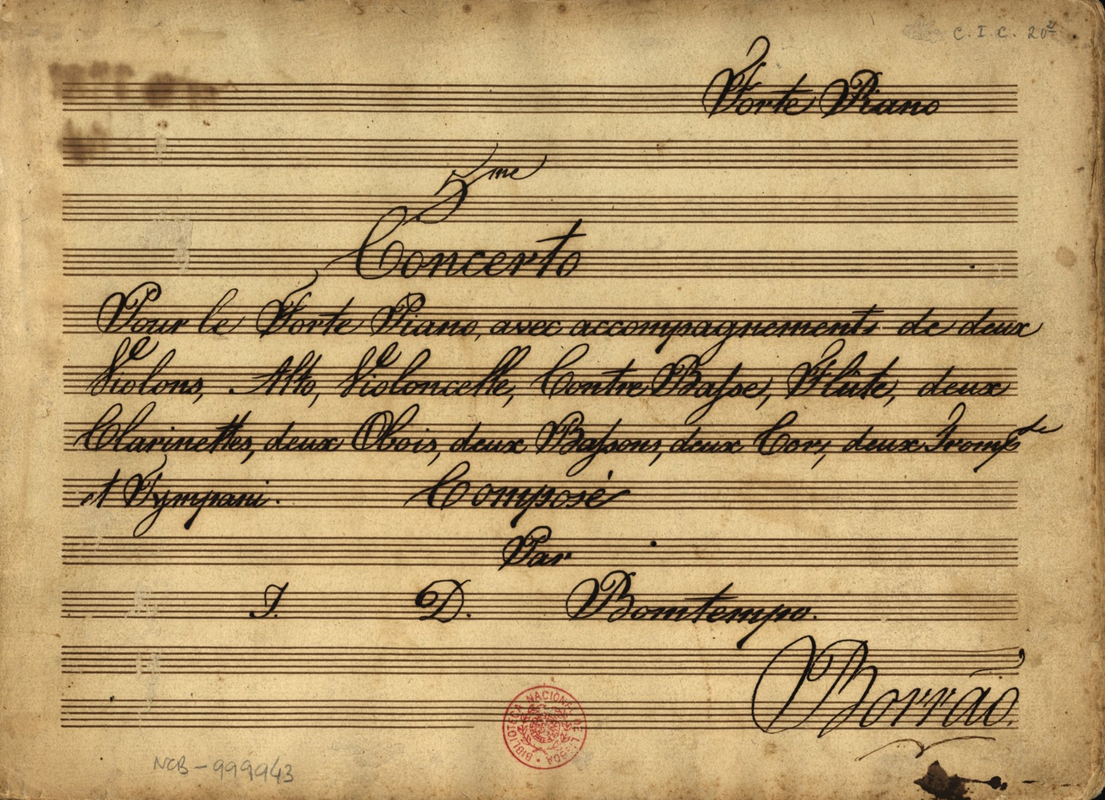 C. I. C. 20
Forte Piano
5me
Concerto
Pour le Forte Piano, avec accompagnements de deux
Violons, Alto, Violoncelle, Contre Basse, Flûte, deux
Clarinettes, deux Obois, deux Bassons, deux Cors, deux Tromp
et Tympani. Composé
Par
J. D. Bomtempo.
Borrão.
BIBLIOTECA NACIONAL DE LISBOA
NCB-999943